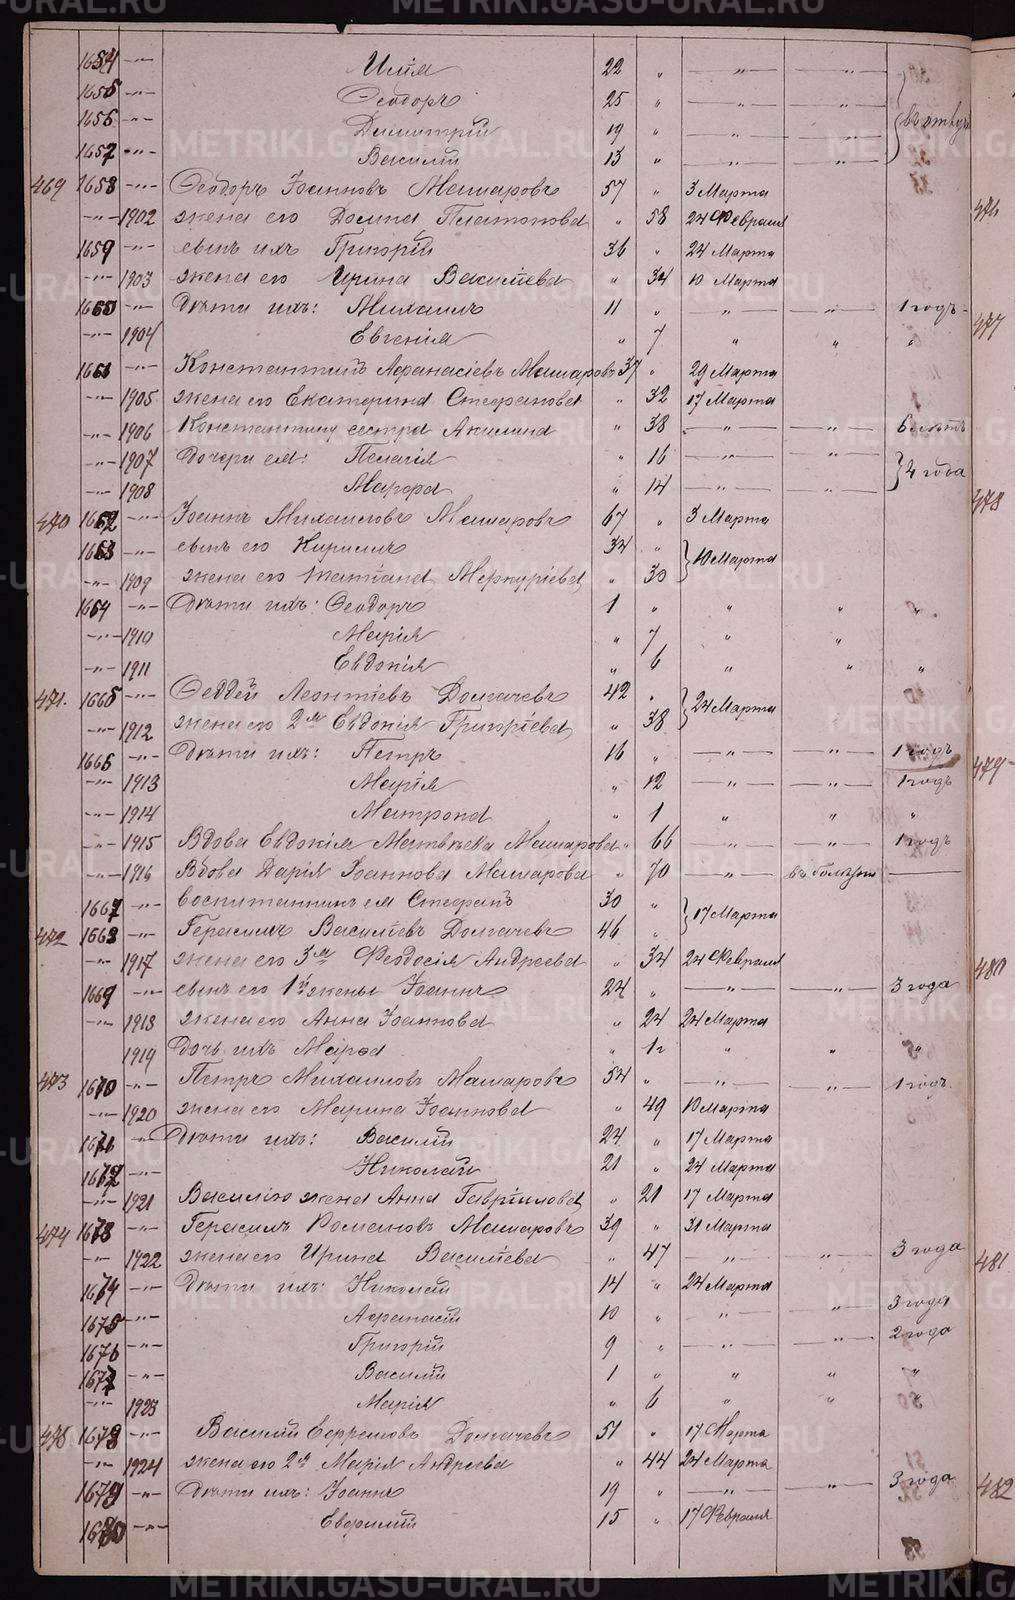 1654 -"- Илія 22 " -"- -"-
1655 -"- Ѳеодоръ 25 " -"- -"-
1656 -"- Димитрій 19 " -"- -"- въ отлуч
1657 -"- Василій 13 " -"- -"-
469 1658 -"- Ѳеодоръ Іоанновъ Машаровъ 57 " 3 Марта
-"- 1902 жена его Домна Платонова " 58 24 Февраля
1659 -"- сынъ ихъ Григорій 36 " 24 Марта
-"- 1903 жена его Ирина Василіева " 34 10 Марта
1660 -"- Дѣти ихъ: Михаилъ 11 " -"- -"- 1 годъ
-"- 1904 Евгенія " 7 " " "
1661 -"- Константинъ Аѳанасіевъ Машаровъ 37 " 29 Марта
-"- 1905 жена его Екатерина Стефанова " 32 17 Марта
-"- 1906 Константину сестра Акилина " 38 -"- -"- 6 лѣтъ
-"- 1907 дочери ея: Пелагія " 16 -"- -"- 4 года
-"- 1908 Марѳа " 14 -"- -"-
470 1662 -"- Іоаннъ Михаиловъ Машаровъ 67 " 3 Марта
1663 -"- сынъ его Кириллъ 34 " 10 Марта
-"- 1909 жена его Татіана Меркуріева " 30
1664 -"- Дѣти ихъ: Ѳеодоръ 1 " " " "
-"- 1910 Марія " 7 " "
-"- 1911 Евдокія " 6 " " "
471. 1665 -"- Ѳаддей Леонтіевъ Долгачевъ 42 " 24 Марта
-"- 1912 жена его 2я Евдокія Григоріева " 38
1666 -"- Дѣти ихъ: Петръ 16 " -"- -"- 1 годъ
-"- 1913 Марія " 12 -"- -"- 1 годъ
-"- 1914 Матрона " 1 " " "
-"- 1915 Вдова Евдокія Матвѣева Машарова " 66 -"- -"- 1 годъ
-"- 1916 Вдова Дарія Іоаннова Машарова " 70 -"- въ болѣзни
1667 -"- воспитанникъ ея Стефанъ 30 " 17 Марта
472 1668 -"- Герасимъ Василіевъ Долгачевъ 46 "
-"- 1917 жена его 3я Ѳеодосія Андреева " 34 24 Февраля
1669 -"- сынъ его 1й жены Іоаннъ 24 " -"- -"- 3 года
-"- 1918 жена его Анна Іоаннова " 24 24 Марта
1919 дочь ихъ Марѳа " " " "
473 1670 -"- Петръ Михаиловъ Машаровъ 54 " -"- -"- 1 годъ
-"- 1920 жена его Марина Іоаннова " 49 10 Марта
1671 -"- Дѣти ихъ: Василій 24 " 17 Марта
1672 -"- Николай 21 " 24 Марта
-"- 1921 Василію жена Анна Гавріилова " 21 17 Марта
474 1673 -"- Герасимъ Романовъ Машаровъ 39 " 31 Марта
-"- 1922 жена его Ирина Василіева " 47 -"- -"- 3 года
1674 -"- Дѣти ихъ: Николай 14 " 24 Марта
1675 -"- Аѳанасій 10 " -"- -"- 3 года
1676 -"- Григорій 9 " -"- -"- 2 года
1677 -"- Василій 1 " " " "
-"- 1923 Марія " 6 " "
475 1678 -"- Василій Ефремовъ Долгачевъ 51 " 17 Марта
-"- 1924 жена его 2я Марія Андреева " 44 24 Марта
1679 -"- Дѣти ихъ: Іоаннъ 19 " -"- -"- 3 года
1680 -"- Евфимій 15 " 17 Февраля
476
477
478
479
480
481
482
METRIKI.GASO-URAL.RU